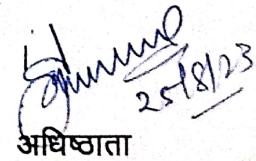 25/8/23
अधिष्ठाता